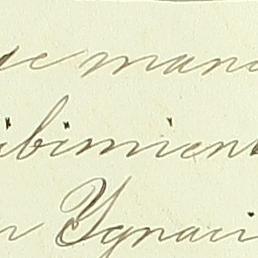 se mand
ibimient
n Ygnaci